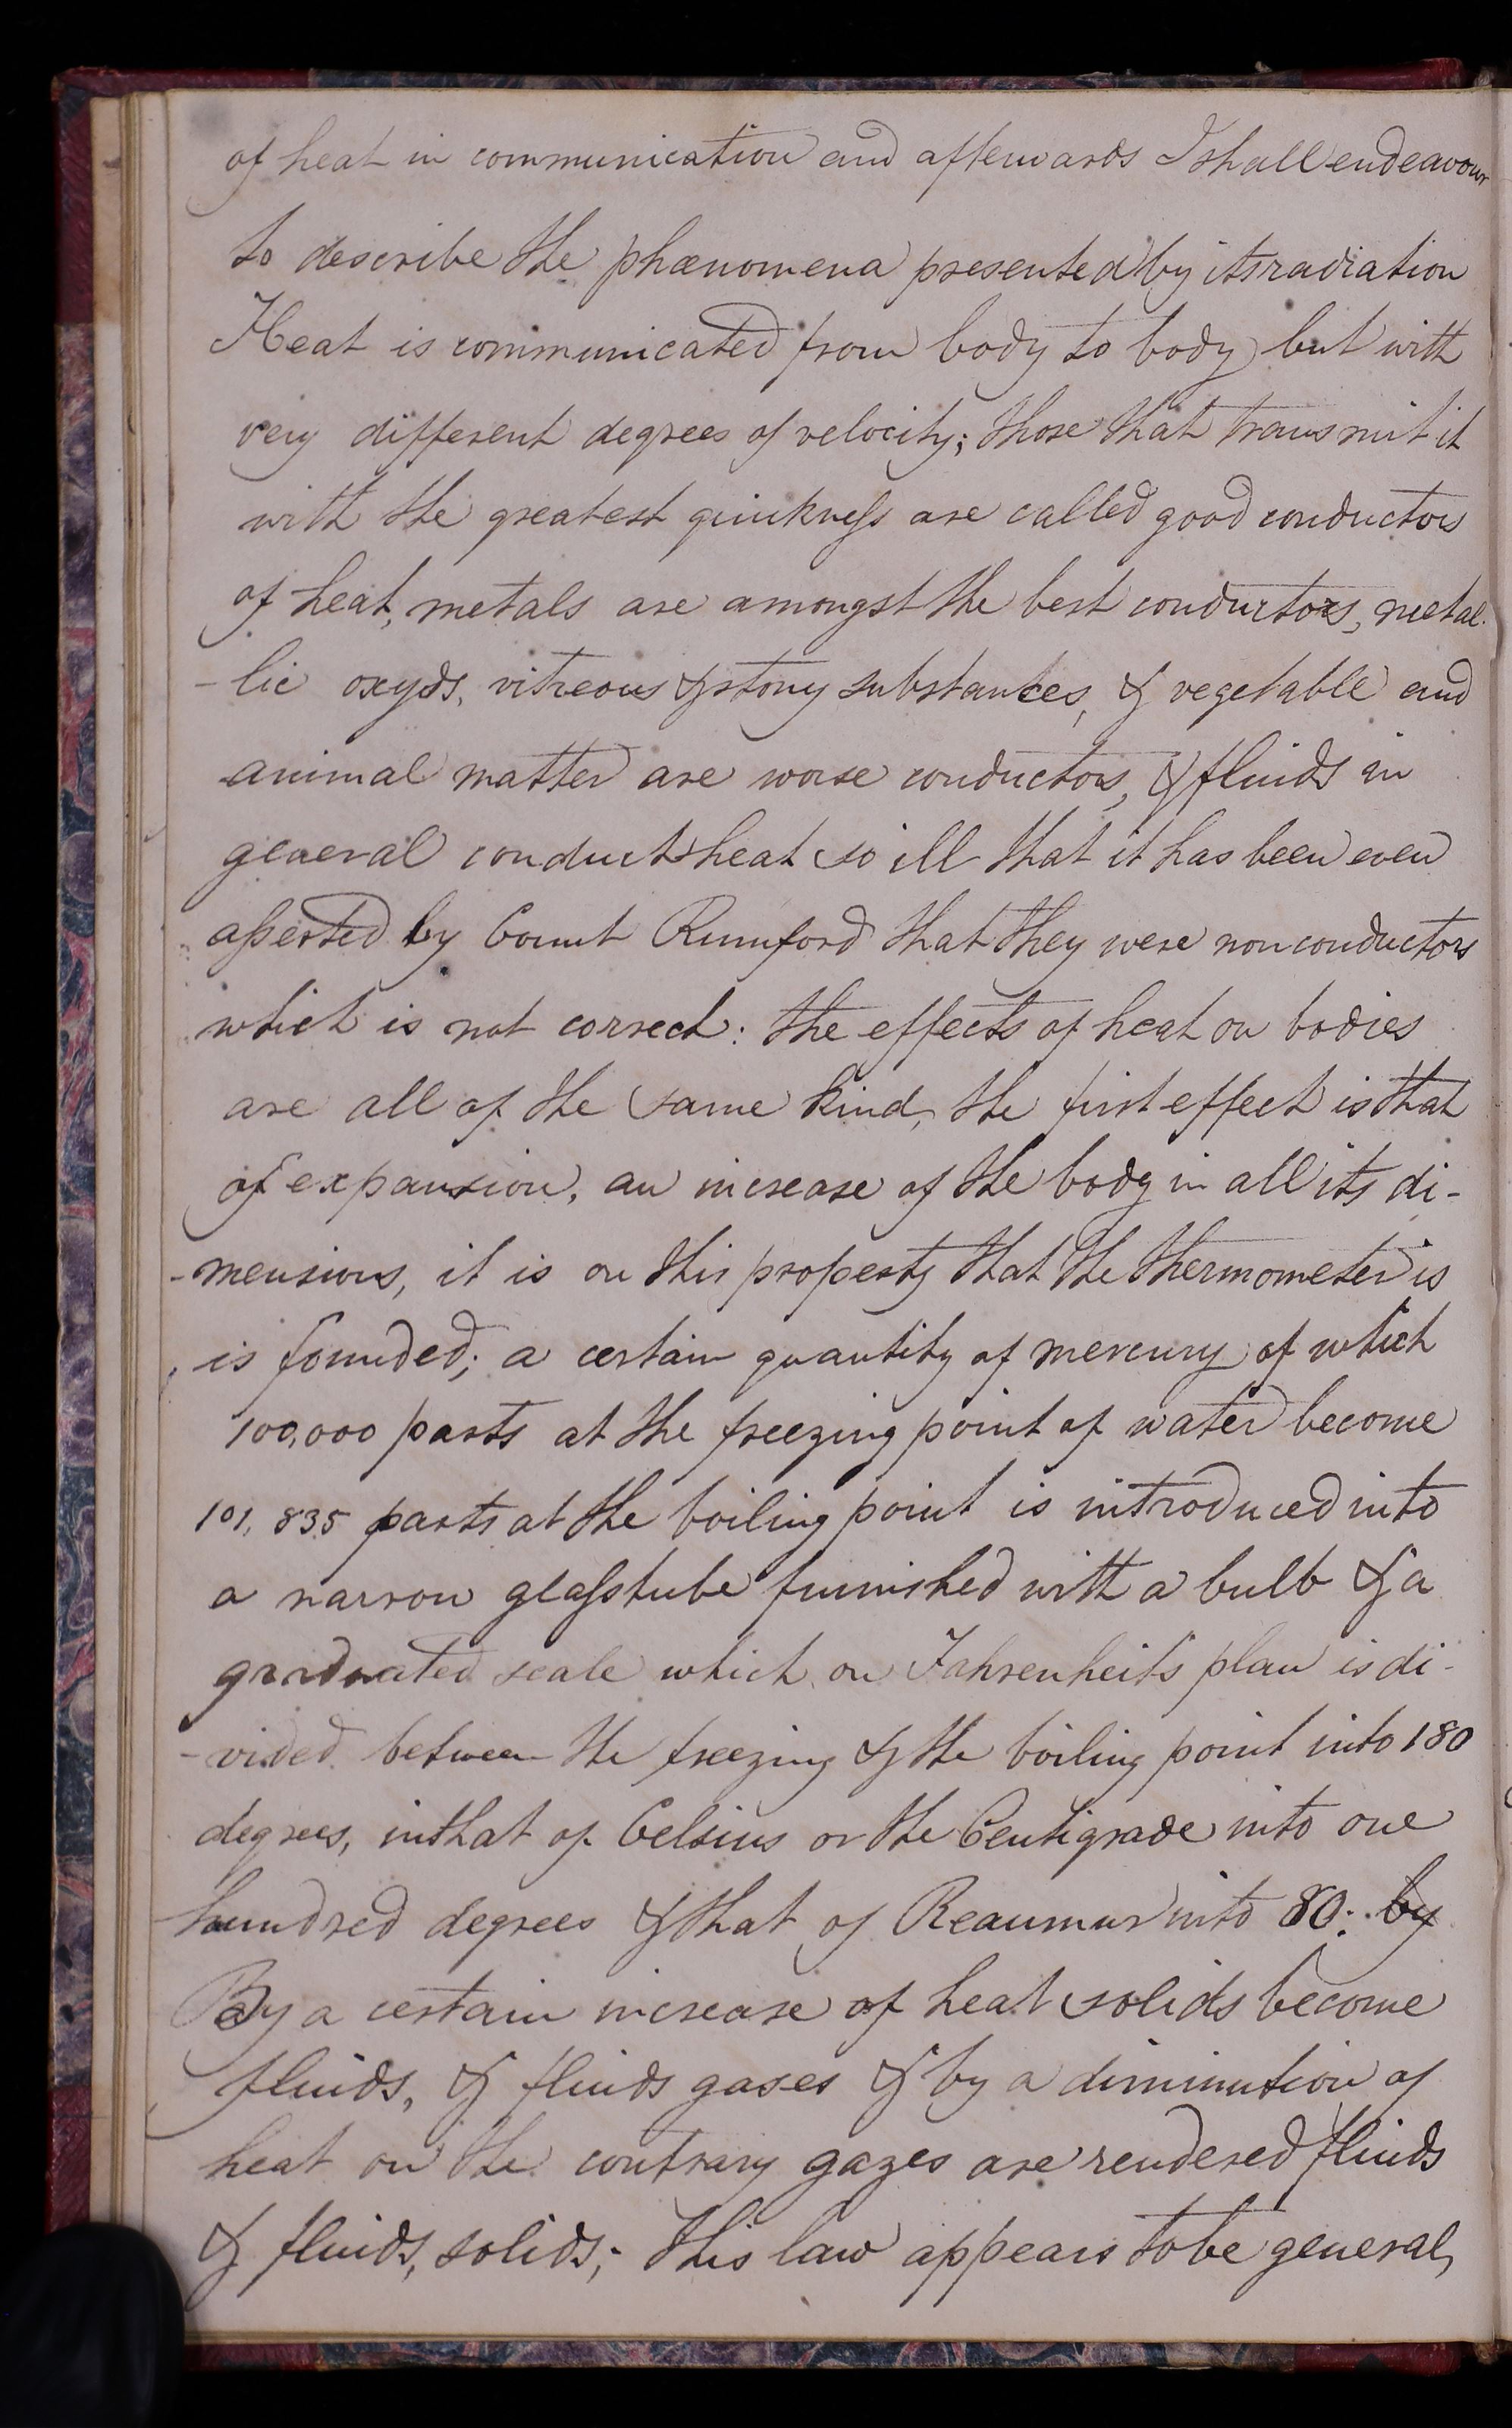 of heat in communication and afterwards I shall endeavour
to describe the phænomena presented by its radiation
Heat is communicated from body to body but with
very different degrees of velocity; those that transmit it
with the greatest quickneſs are called good conductors
of heat, metals are amongst the best conductors, metal-
-lic oxyds, vitreous & stony substances, & vegetable and
animal matter are worse conductors, & fluids in
general conduct heat so ill that it has been even
aſserted by Count Rumford that they were non conductors
which is not correct: the effects of heat on bodies
are all of the same kind, the first effect is that
of expansion, an increase of the body in all its di-
-mensions, it is on this property that the thermometer is
is founded; a certain quantity of mercury of which
100,000 parts at the freezing point of water become
101,835 parts at the boiling point is introduced into
a narrow glaſs tube furnished with a bulb & a
graduated scale which on Fahrenheit's plan is di-
-vided between the freezing & the boiling point into 180
degrees, in that of Celsius or the Centigrade into one
hundred degrees & that of Reaumur into 80: by
By a certain increase of heat solids become
fluids, & fluids gases & by a diminution of
heat on the contrary gazes are rendered fluids
& fluids, solids; this law appears to be general,